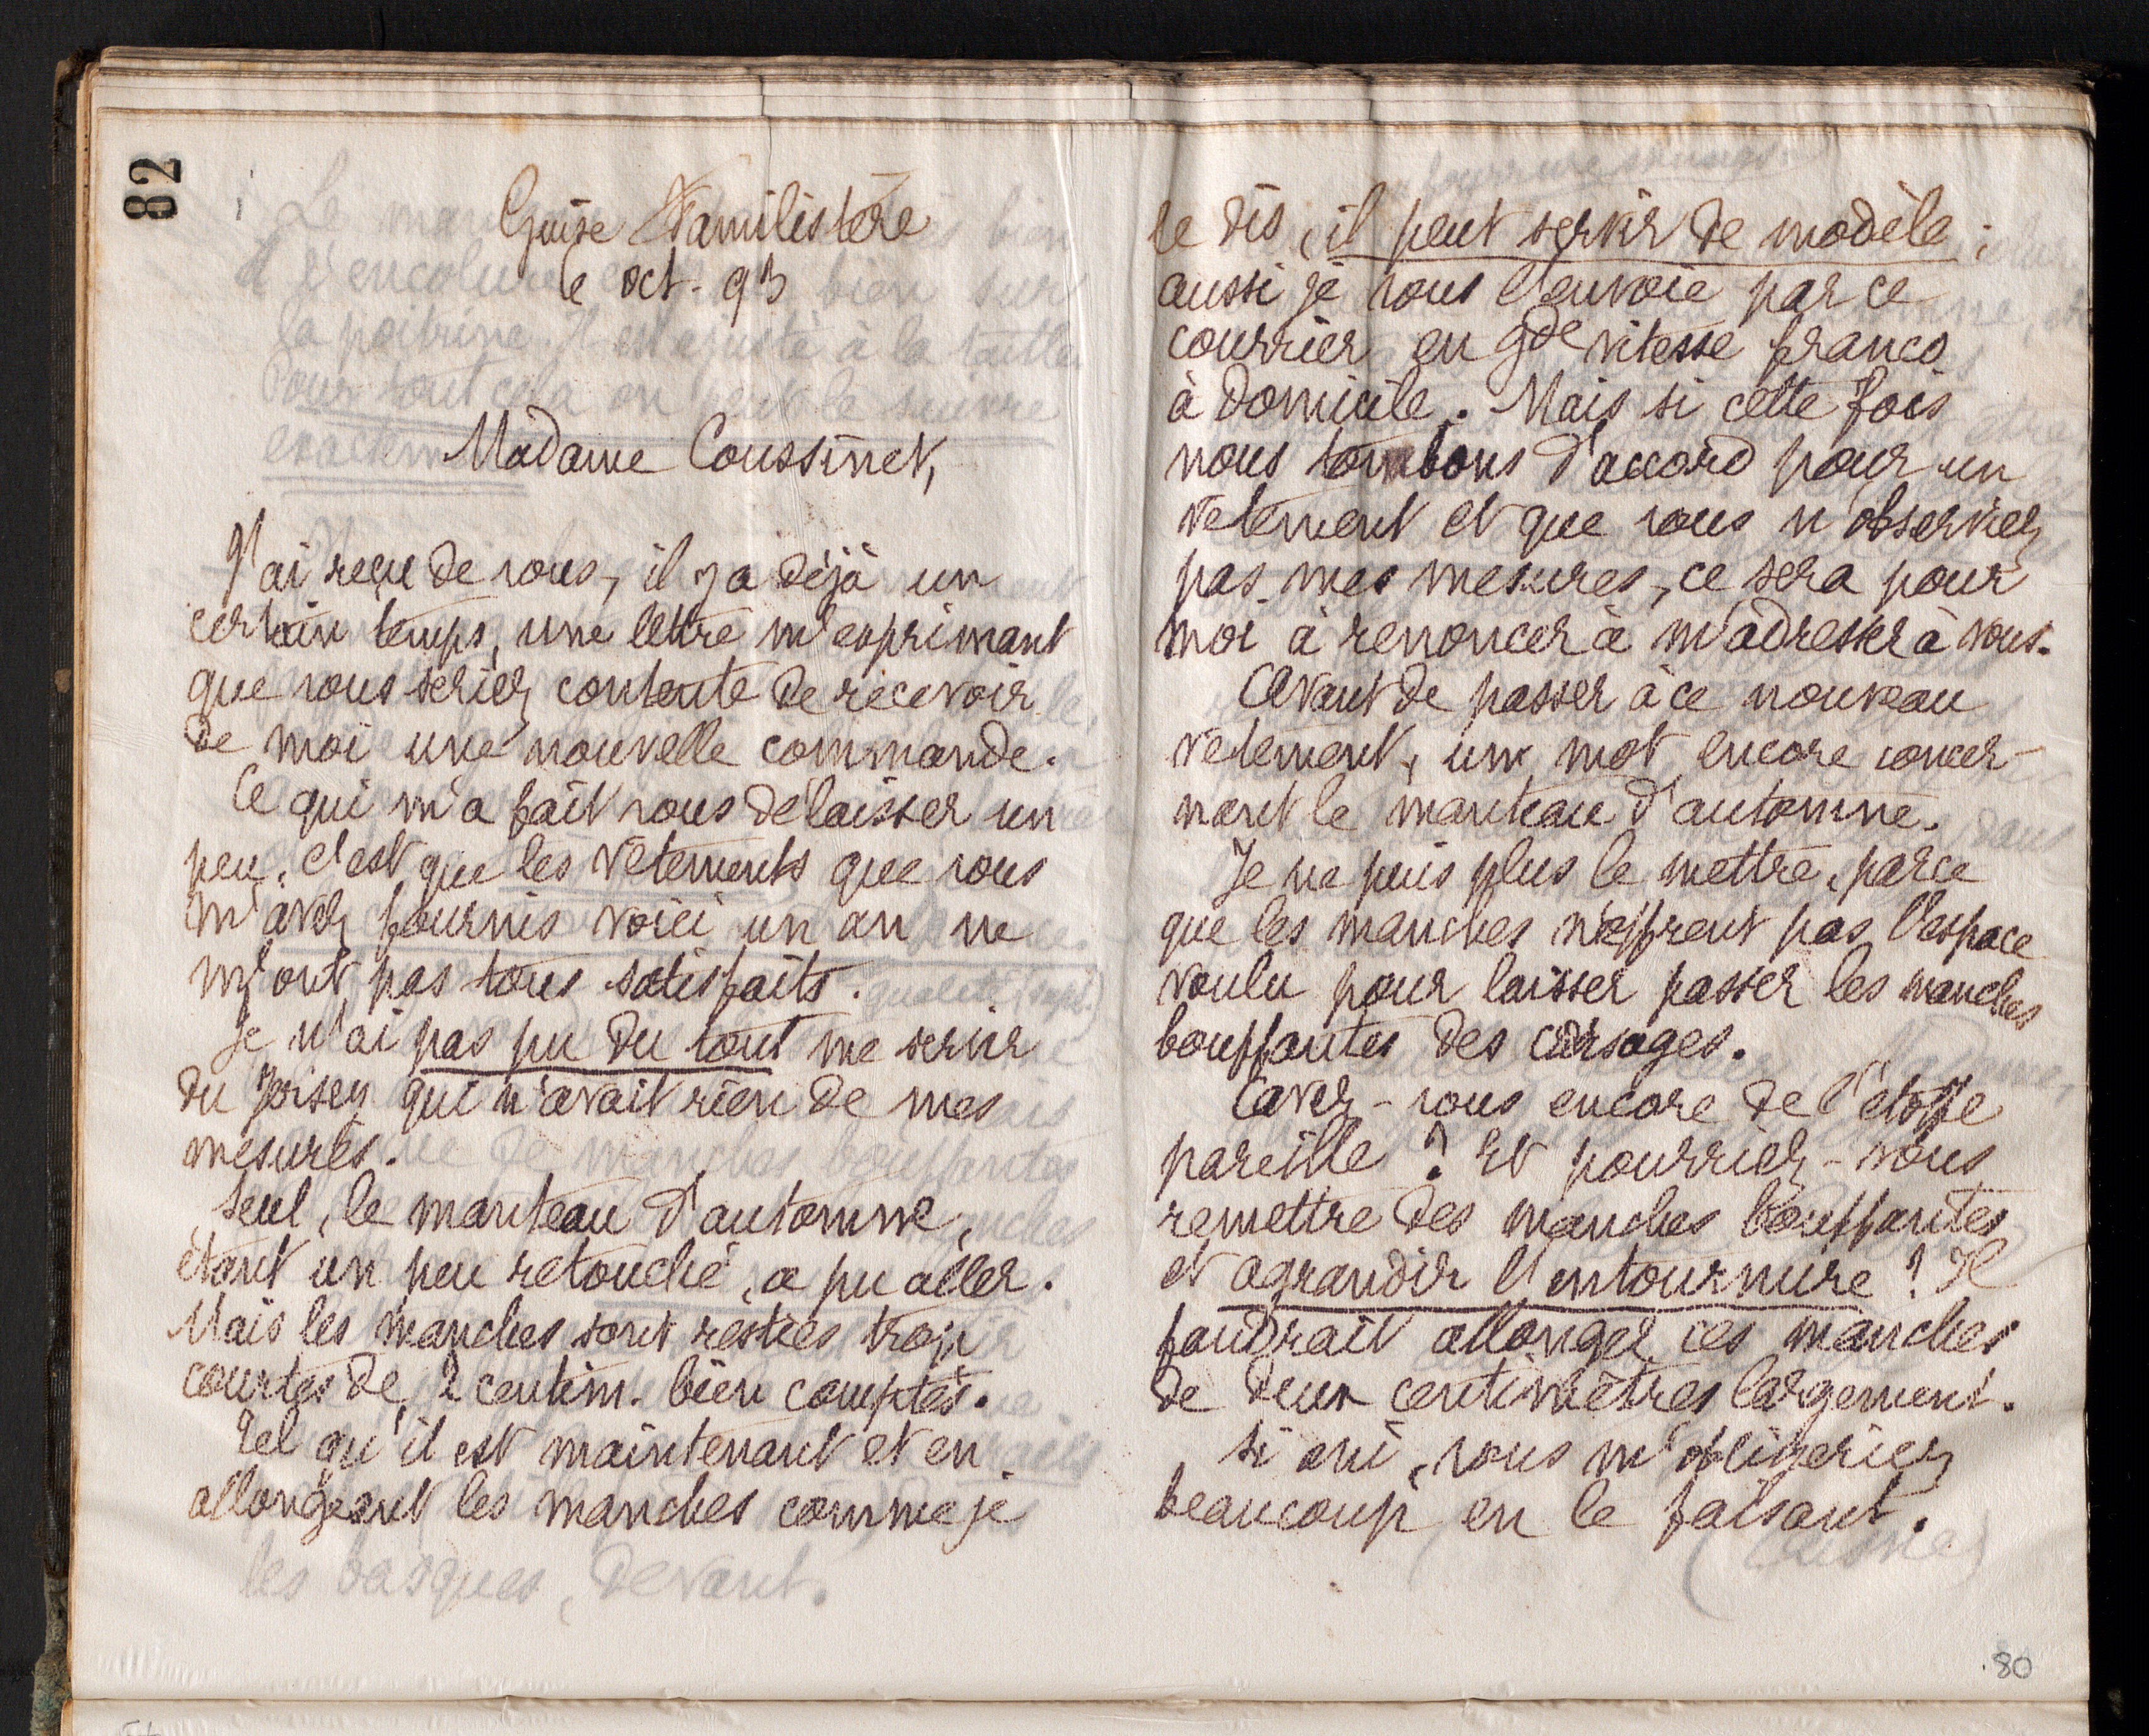 82
Guise Familistère
6 oct. 93
Madame Coussinet,
J'ai reçu de vous, il y a déjà un
certain temps, une lettre m'exprimant
que vous seriez contente de recevoir
de moi une nouvelle commande.
Ce qui m'a fait vous délaisser un
peu, c'est que les vêtements que vous
m'avez fournis voici un an ne
m'ont pas tous satisfaits.
Je n'ai pas pu du tout me servir
du Jersey qui n'avait rien de mes
mesures.
Seul, le manteau d'automne,
étant un peu retouché, a pu aller.
Mais les manches sont restées trop
courtes de 2 centim. bien comptés.
Tel qu'il est maintenant et en
allongeant les manches comme je
le dis, il peut servir de modèle;
aussi je vous l'envoie par ce
courrier en gde vitesse franco
à domicile. Mais si cette fois
nous tombons d'accord pour un
vêtement et que vous n'observiez
pas mes mesures, ce sera pour
moi à renoncer à m'adresser à vous.
Avant de passer à ce nouveau
vêtement, un mot encore concer-
nant le manteau d'automne.
Je ne puis plus le mettre, parce
que les manches n'offrent pas l'espace
voulu pour laisser passer les manches
bouffantes des corsages.
Avez-vous encore de l'étoffe
pareille ? Et pourriez-vous
remettre des manches bouffantes
et agrandir l'entournure ? Il
faudrait allonger ces manches
de deux centimètres largement.
Si oui, vous m'obligeriez
beaucoup en le faisant.
80